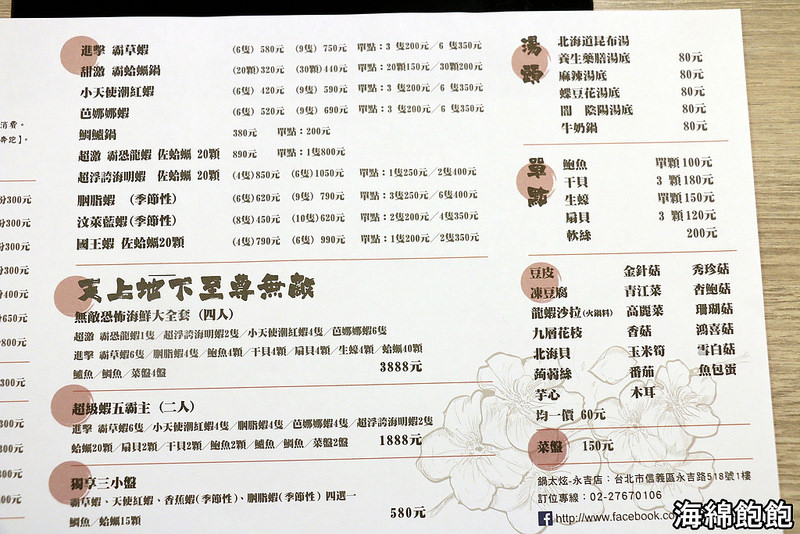 消費。
奔跑】。
份300元
份300元
份300元
份300元
份400元
份650元
份800元
份300元
份300元
份300元
份300元
進擊 霸草蝦 (6隻) 580元 (9隻) 750元 單點：3 隻200元／6 隻350元
甜激 霸蛤蠣鍋 (20顆)320元 (30顆)440元 單點：20顆150元／30顆200元
小天使潮紅蝦 (6隻) 420元 (9隻) 590元 單點：3 隻200元／6 隻350元
芭娜娜蝦 (6隻) 520元 (9隻) 690元 單點：3 隻200元／6 隻350元
鯛鱸鍋 380元 單點：200元
超激 霸恐龍蝦 佐蛤蠣 20顆 890元 單點：1隻800元
超浮誇海明蝦 佐蛤蠣 20顆 (4隻)850元 (6隻)1050元 單點：1隻250元／2隻400元
胭脂蝦 (季節性) (6隻)620元 (9隻) 790元 單點：3隻250元／6隻400元
汶萊藍蝦(季節性) (8隻)450元 (10隻)620元 單點：2隻200元／4隻350元
國王蝦 佐蛤蠣20顆 (4隻)790元 (6隻) 990元 單點：1隻200元／2隻350元
天上地下至尊無敵
無敵恐怖海鮮大全套 (四人)
超激 霸恐龍蝦1隻／超浮誇海明蝦2隻／小天使潮紅蝦4隻／芭娜娜蝦6隻
進擊 霸草蝦6隻／胭脂蝦4隻／鮑魚4顆／干貝4顆／扇貝4顆／生蠔4顆／蛤蠣40顆
鱸魚／鯛魚／菜盤4盤 3888元
超級蝦五霸主 (二人)
進擊 霸草蝦6隻／小天使潮紅蝦4隻／胭脂蝦4隻／芭娜娜蝦4隻／超浮誇海明蝦2隻
蛤蠣20顆／扇貝2顆／干貝2顆／鮑魚2顆／鱸魚／鯛魚／菜盤2盤 1888元
獨享三小盤
霸草蝦、天使紅蝦、香蕉蝦(季節性)、胭脂蝦(季節性) 四選一
鯛魚／蛤蠣15顆 580元
湯頭
北海道昆布湯
養生藥膳湯底 80元
麻辣湯底 80元
蝶豆花湯底 80元
闇 陰陽湯底 80元
牛奶鍋 80元
單點
鮑魚 單顆100元
干貝 3 顆180元
生蠔 單顆150元
扇貝 3 顆120元
軟絲 200元
豆皮 金針菇 秀珍菇
凍豆腐 青江菜 杏鮑菇
龍蝦沙拉(火鍋料) 高麗菜 珊瑚菇
九層花枝 香菇 鴻喜菇
北海貝 玉米筍 雪白菇
蒟蒻絲 番茄 魚包蛋
芋心 木耳
均一價 60元
菜盤 150元
鍋太炫-永吉店：台北市信義區永吉路518號1樓
訂位專線：02-27670106
http://www.facebook.co
海綿飽飽